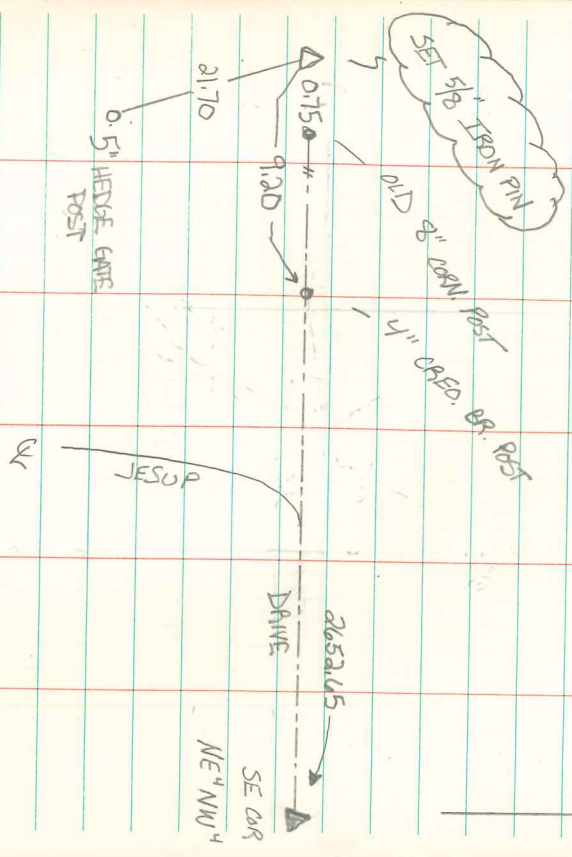 SET 5/8" IRON PIN
OLD 8" CORN. POST
4" CREO. BR. POST
0.75
9.20
21.70
0.5" HEDGE GATE
POST
℄
JESUP
DRIVE
2652.65
SE COR
NE⁴ NW⁴